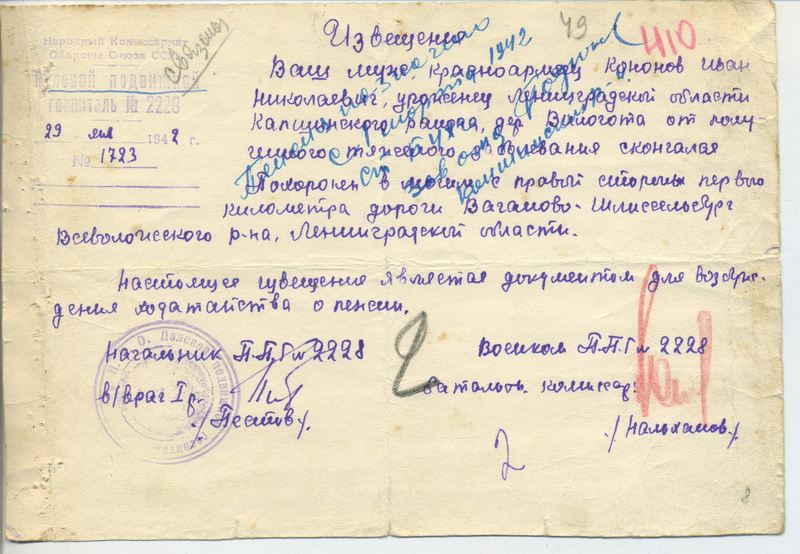 Народный Комиссариат
Обороны Союза ССР
Полевой подвижной
госпиталь № 2228
29 янв 1942 г.
№ 1723
связаны
49
410
Извещение
Ваш муж Красноармеец Кононов Иван
Николаевич, уроженец Ленинградской области
Капшинского района, дер Вилогота от полу-
ченного тяжелого заболевания скончался
Похоронен в могиле с правой стороны первого
километра дороги Ваганово-Шлиссельбург
Всеволожского р-на, Ленинградской области.
Настоящее извещения является документом для возбуж-
дения ходатайства о пенсии.
Начальник П.П.Г № 2228
в/врач I р.
/Пестов/.
Военком П.П.Г № 2228
батальон. комиссар:
/Налханов/.
2
2
8